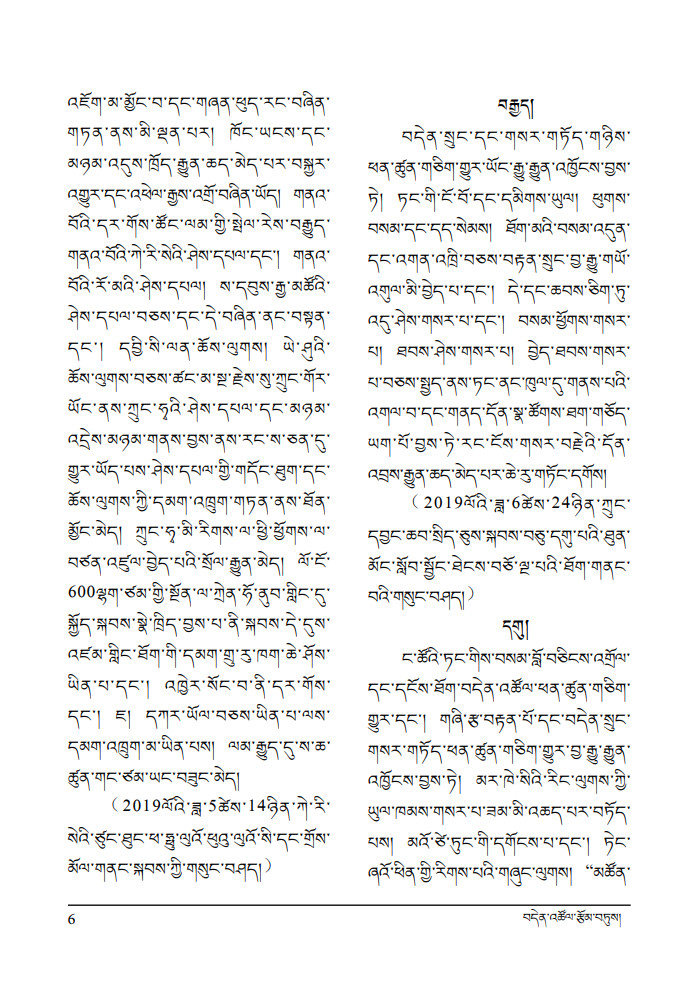 འཇོག་མ་མྱོང་བ་དང་གཞན་ཕུད་རང་བཞིན་
གཏན་ནས་མི་ལྡན་པར། ཁོང་ཡངས་དང་
མཉམ་འདུས་ཁྲོད་རྒྱུན་ཆད་མེད་པར་བསྐྱར་
འགྱུར་དང་འཕེལ་རྒྱས་འགྲོ་བཞིན་ཡོད། གནའ་
བོའི་དར་གོས་ཚོང་ལམ་གྱི་སྤེལ་རེས་བརྒྱུད་
གནའ་བོའི་ཀེ་རི་སེའི་ཤེས་དཔལ་དང་། གནའ་
བོའི་རོ་མའི་ཤེས་དཔལ། ས་དབུས་རྒྱ་མཚོའི་
ཤེས་དཔལ་བཅས་དང་དེ་བཞིན་ནང་བསྟན་
དང་། དབྱི་སི་ལན་ཆོས་ལུགས། ཡེ་ཤུའི་
ཆོས་ལུགས་བཅས་ཚང་མ་སྔ་རྗེས་སུ་ཀྲུང་གོར་
ཡོང་ནས་ཀྲུང་ཧྭའི་ཤེས་དཔལ་དང་མཉམ་
འདྲེས་མཉམ་གནས་བྱས་ནས་རང་ས་ཅན་དུ་
གྱུར་ཡོད་པས་ཤེས་དཔལ་གྱི་གདོང་ཐུག་དང་
ཆོས་ལུགས་ཀྱི་དམག་འཁྲུག་གཏན་ནས་ཐོན་
མྱོང་མེད། ཀྲུང་ཧྭ་མི་རིགས་ལ་ཕྱི་ཕྱོགས་ལ་
བཙན་འཛུལ་བྱེད་པའི་སྲོལ་རྒྱུན་མེད། ལོ་ངོ་
600ལྷག་ཙམ་གྱི་སྔོན་ལ་ཀྲེན་ཧོ་ནུབ་གླིང་དུ་
སྐྱོད་སྐབས་སྣེ་ཁྲིད་བྱས་པ་ནི་སྐབས་དེ་དུས་
འཛམ་གླིང་ཐོག་གི་དམག་གྲུ་རུ་ཁག་ཆེ་ཤོས་
ཡིན་པ་དང་། འཁྱེར་སོང་བ་ནི་དར་གོས་
དང་། ཇ། དཀར་ཡོལ་བཅས་ཡིན་པ་ལས་
དམག་འཁྲུག་མ་ཡིན་པས། ལམ་རྒྱུད་དུ་ས་ཆ་
ཚུན་གང་ཙམ་ཡང་བཟུང་མེད།
（2019ལོའི་ཟླ་5ཚེས་14ཉིན་ཀེ་རི་
སེའི་ཙུང་ཐུང་ཕ་ཧྥུ་ལུའོ་ཕུའུ་ལུའོ་སི་དང་གྲོས་
མོལ་གནང་སྐབས་ཀྱི་གསུང་བཤད།）
བརྒྱད།
བདེན་སྲུང་དང་གསར་གཏོད་གཉིས་
ཕན་ཚུན་གཅིག་གྱུར་ཡོང་རྒྱུ་རྒྱུན་འཁྱོངས་བྱས་
ཏེ། ཏང་གི་ངོ་བོ་དང་དམིགས་ཡུལ། ཕུགས་
བསམ་དང་དད་སེམས། ཐོག་མའི་བསམ་འདུན་
དང་འགན་འཁྲི་བཅས་བརྟན་སྲུང་བྱ་རྒྱུ་གཡོ་
འགུལ་མི་བྱེད་པ་དང་། དེ་དང་ཆབས་ཅིག་ཏུ་
འདུ་ཤེས་གསར་པ་དང་། བསམ་ཕྱོགས་གསར་
པ། ཐབས་ཤེས་གསར་པ། བྱེད་ཐབས་གསར་
པ་བཅས་སྤྱད་ནས་ཏང་ནང་ཁུལ་དུ་གནས་པའི་
འགལ་བ་དང་གནད་དོན་སྣ་ཚོགས་ཐག་གཅོད་
ཡག་པོ་བྱས་ཏེ་རང་ངོས་གསར་བརྗེའི་དོན་
འབྲས་རྒྱུན་ཆད་མེད་པར་ཆེ་རུ་གཏོང་དགོས།
（2019ལོའི་ཟླ་6ཚེས་24ཉིན་ཀྲུང་
དབྱང་ཆབ་སྲིད་ཅུས་སྐབས་བཅུ་དགུ་པའི་ཐུན་
མོང་སློབ་སྦྱོང་ཐེངས་བཅོ་ལྔ་པའི་ཐོག་གནང་
བའི་གསུང་བཤད།）
དགུ།
ང་ཚོའི་ཏང་གིས་བསམ་བློ་བཅིངས་འགྲོལ་
དང་དངོས་ཐོག་བདེན་འཚོལ་ཕན་ཚུན་གཅིག་
གྱུར་དང་། གཞི་རྩ་བརྟན་པོ་དང་བདེན་སྲུང་
གསར་གཏོད་ཕན་ཚུན་གཅིག་གྱུར་བྱ་རྒྱུ་རྒྱུན་
འཁྱོངས་བྱས་ཏེ། མར་ཁེ་སིའི་རིང་ལུགས་ཀྱི་
ཡུལ་ཁམས་གསར་པ་ཟམ་མི་འཆད་པར་བཏོད་
པས། མའོ་ཙེ་ཏུང་གི་དགོངས་པ་དང་། ཏེང་
ཞའོ་ཕིན་གྱི་རིགས་པའི་གཞུང་ལུགས། “མཚོན་
6
བདེན་འཚོལ་རྩོམ་བཏུས།